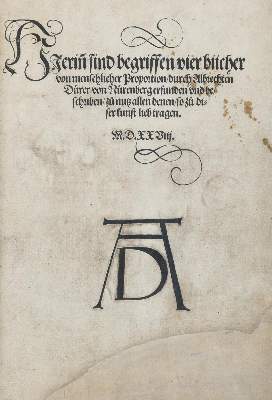 Hjerinn sind begriffen vier bücher
von menschlicher Proportion durch Albrechten
Dürer von Nürenberg erfunden und be-
schriben zu nutz allen denen so zu di-
ser kunst lieb tragen.
M.D.XXViij.
AD